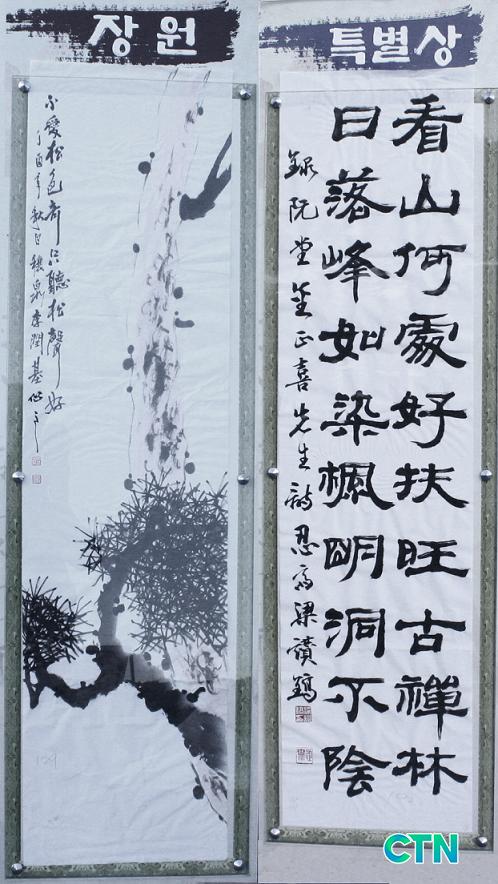 장원
不愛松色奇只聽松聲好
丁酉年秋日穆泉李潤基作
특별상
看山何處好扶旺古禪林
日落峰如染楓明洞不陰
錄阮堂金正喜先生詩忍齋梁讚鎬
CTN